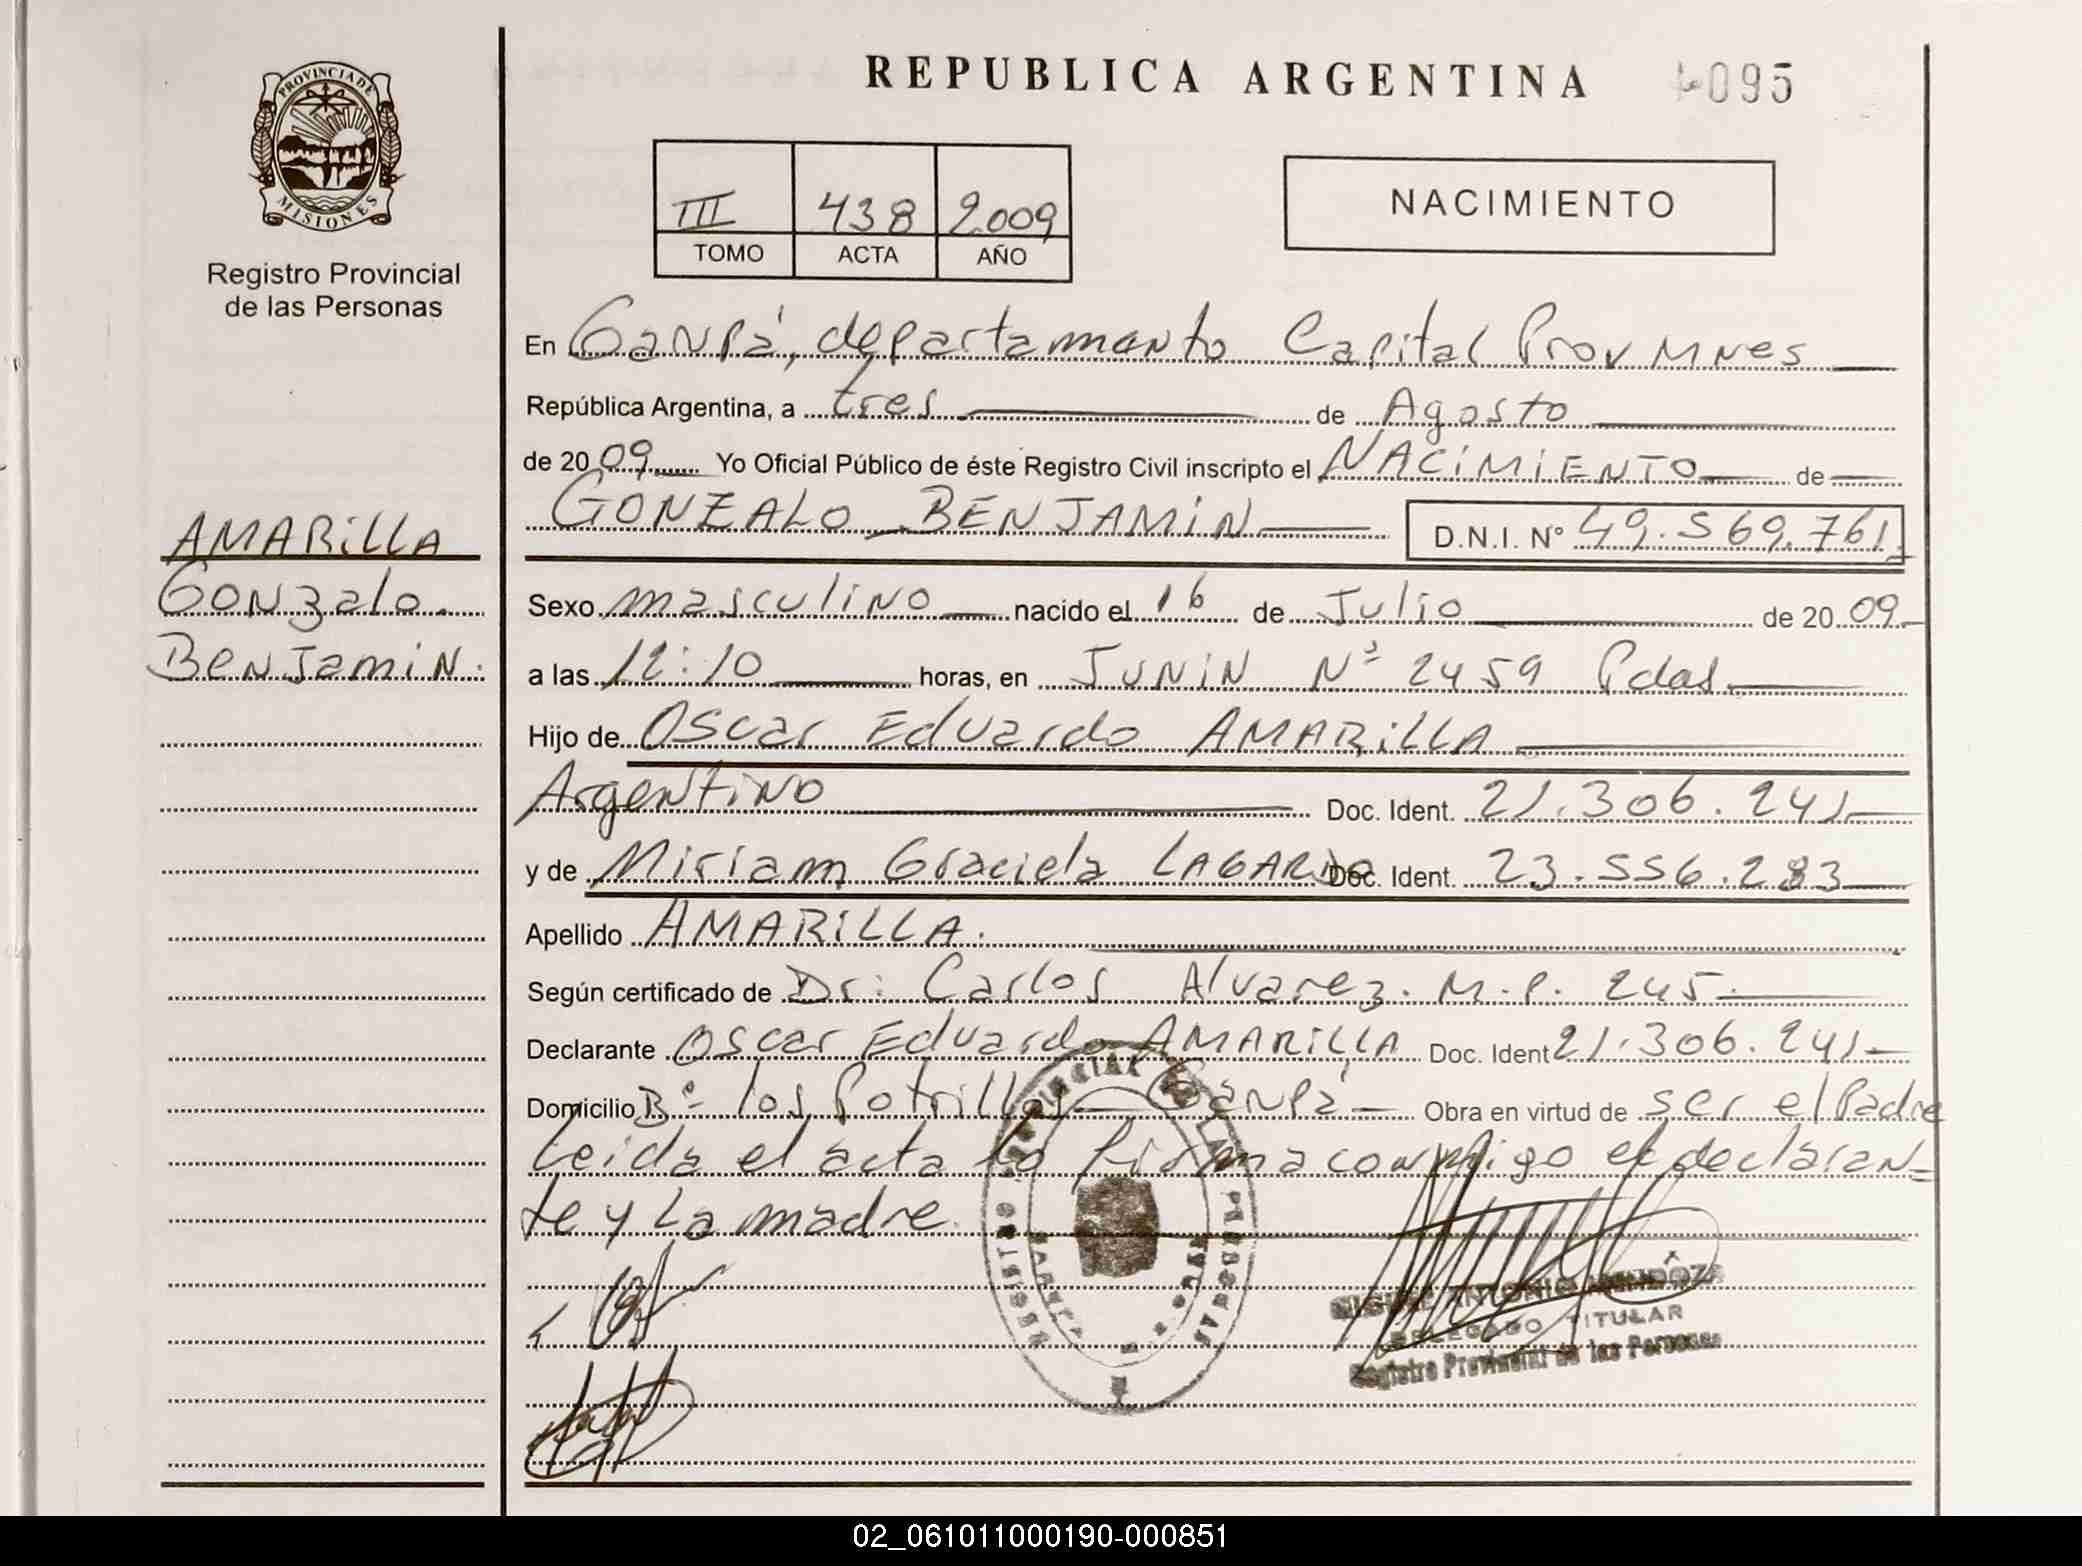 REPUBLICA ARGENTINA
095
PROVINCIA DE
MISIONES
Registro Provincial
de las Personas
III 438 2.009
TOMO ACTA AÑO
NACIMIENTO
En Garupá, departamento Capital Prov Mnes
República Argentina, a tres de Agosto
de 2009 Yo Oficial Público de éste Registro Civil inscripto el NACIMIENTO de
GONZALO BENJAMIN D.N.I. Nº 49.569.761
AMARILLA
Gonzalo
Benjamin.
Sexo masculino nacido el 16 de Julio de 2009
a las 12:10 horas, en JUNIN Nº 2459 Pdas.
Hijo de Oscar Eduardo AMARILLA
Argentino Doc. Ident. 21.306.241
y de Miriam Graciela LAGARDO Doc. Ident. 23.556.283
Apellido AMARILLA.
Según certificado de Dr: Carlos Alvarez. M.P. 245.
Declarante Oscar Eduardo AMARILLA Doc. Ident 21.306.241
Domicilio Bº los Potrillos Garupá Obra en virtud de ser el Padre
Leida el acta la firma conmigo el declaran-
te y La madre.
REGISTRO PROVINCIAL DE LAS PERSONAS
ANTONIO MENDOZA
DELEGADO TITULAR
Registro Provincial de las Personas
02_061011000190-000851